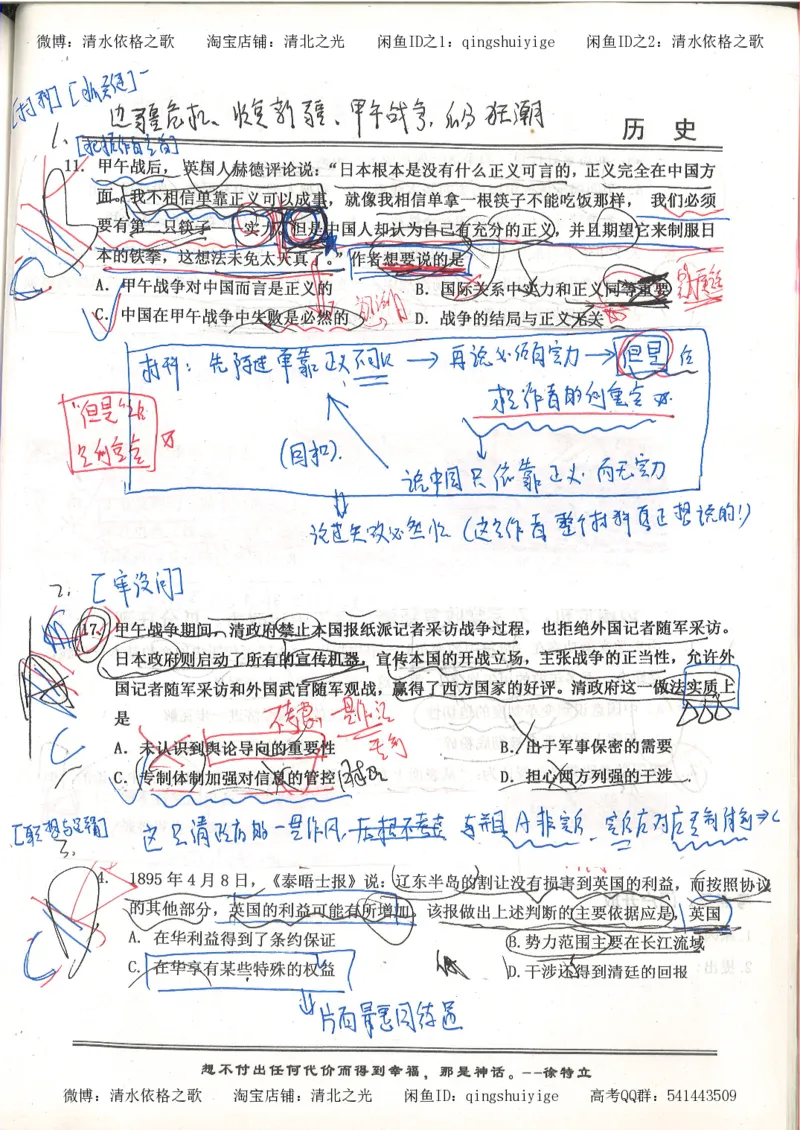 微博：清水依格之歌 淘宝店铺：清北之光 闲鱼ID之1：qingshuiyige 闲鱼ID之2：清水依格之歌
边疆危机、收复新疆、甲午战争、瓜分狂潮
历 史
1.
11. 甲午战后，英国人赫德评论说：“日本根本是没有什么正义可言的，正义完全在中国方
面。我不相信单靠正义可以成事，就像我相信单拿一根筷子不能吃饭那样， 我们必须
要有第二只筷子——实力。但是中国人却认为自己有充分的正义，并且期望它来制服日
本的铁拳，这想法未免太天真了。”作者想要说的是
A．甲午战争对中国而言是正义的 B．国际关系中实力和正义同等重要
C．中国在甲午战争中失败是必然的 D．战争的结局与正义无关
材料：先阐述单靠正义不可以 → 再说必须有实力 → 但是 后
才是作者的侧重点
“但是”后
是侧重点
(因和).
说中国只依靠正义而无实力
论述失败必然性（这是作者整个材料真正想说的!）
2. [审设问]
17. 甲午战争期间，清政府禁止本国报纸派记者采访战争过程，也拒绝外国记者随军采访。
日本政府则启动了所有的宣传机器，宣传本国的开战立场，主张战争的正当性，允许外
国记者随军采访和外国武官随军观战，赢得了西方国家的好评。清政府这一做法实质上
是
A．未认识到舆论导向的重要性 B．出于军事保密的需要
C．专制体制加强对信息的管控 D．担心西方列强的干涉
这只清政府的一贯作风，后果不考虑
3.
4. 1895 年 4 月 8 日，《泰晤士报》说：辽东半岛的割让没有损害到英国的利益，而按照协议
的其他部分，英国的利益可能有所增加。该报做出上述判断的主要依据应是，英国
A．在华利益得到了条约保证 B.势力范围主要在长江流域
C．在华享有某些特殊的权益 D.干涉还得到清廷的回报
片面最惠国待遇
想不付出任何代价而得到幸福，那是神话。--徐特立
微博：清水依格之歌 淘宝店铺：清北之光 闲鱼ID：qingshuiyige 高考QQ群：541443509